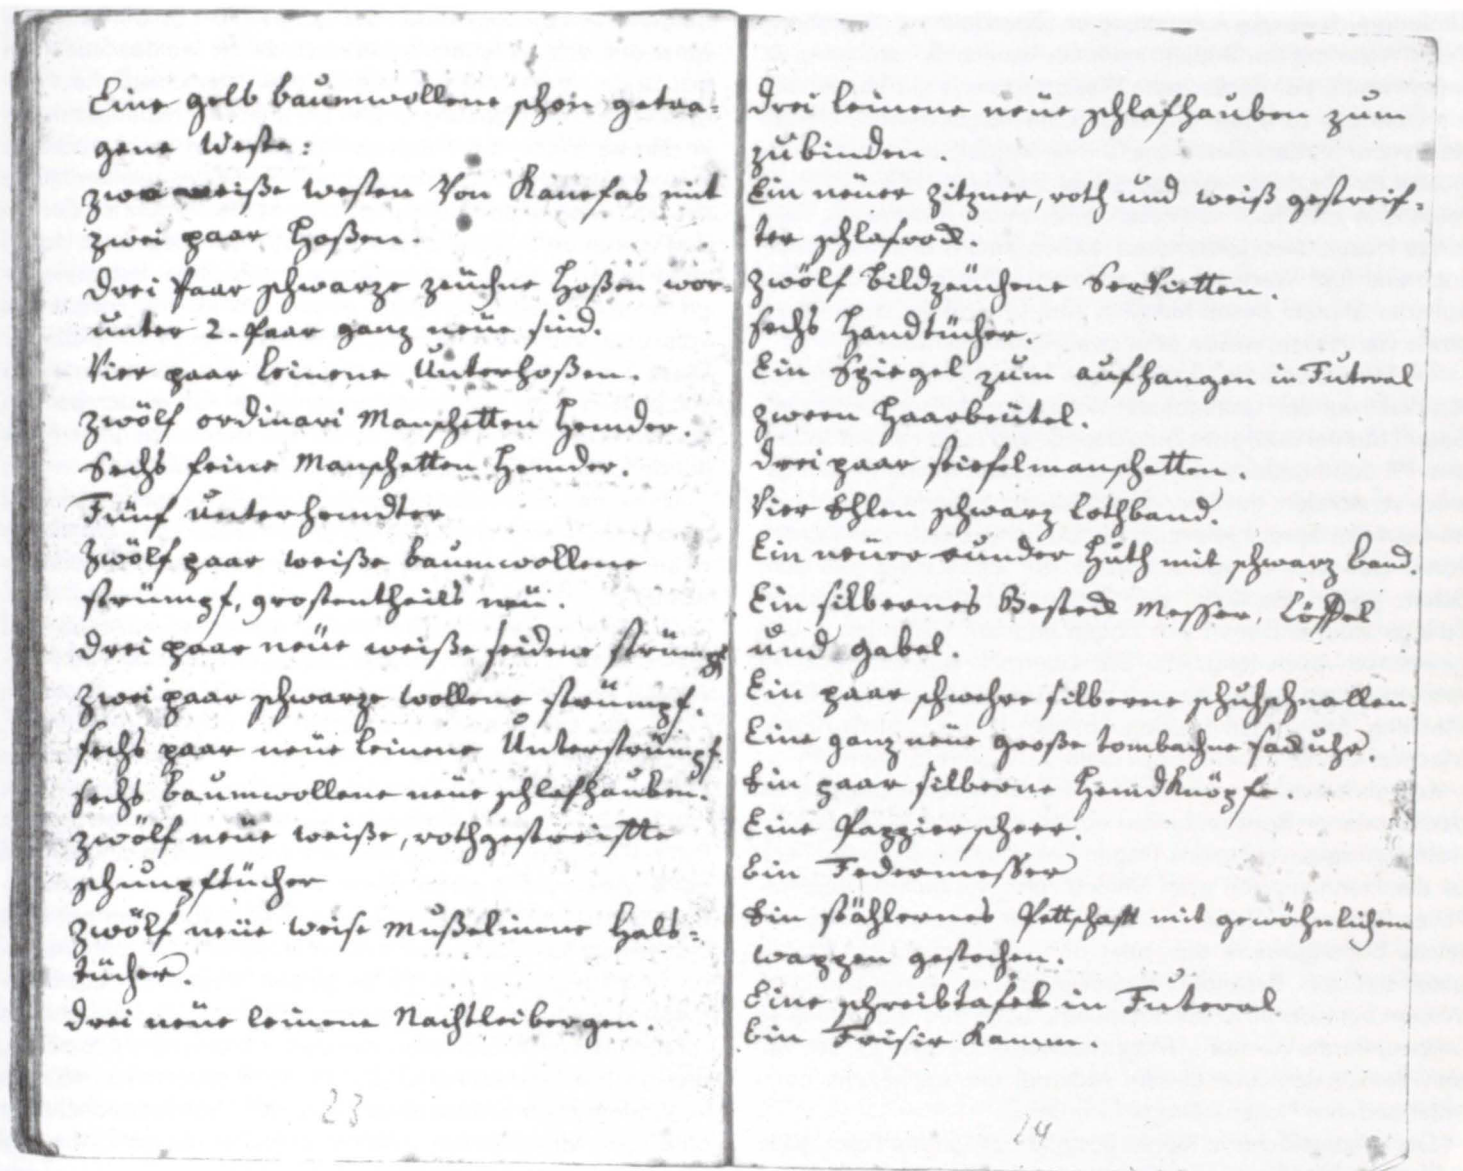 Eine gelb baumwollene schon getra-
gene Weste:
zwo weiße westen Von Kanefas mit
zwei paar Hoßen.
drei Paar schwarze zeüchne Hoßen wor-
unter 2. Paar ganz neüe sind.
Vier paar leinene Unterhoßen.
zwölf ordinari Manschetten Hemder.
Sechs feine Manschetten Hemder.
Fünf unterhemdter
Zwölf paar weiße baumwollene
strümpf, grostentheils neu.
drei paar neüe weiße seidene strümpf
zwei paar schwarze wollene strümpf.
sechs paar neüe leinene Unterstrümpf.
sechs baumwollene neüe schlafhauben.
zwölf neüe weiße, rothgestreifte
schnupftücher
zwölf neüe weise mußelinene Hals-
tücher.
drei neüe leinene Nachtleibergen.
23
drei leinene neüe schlafhauben zum
zubinden.
Ein neüer zitzner, roth und weiß gestreif-
ter schlafrock.
zwölf bildzeüchene Servietten.
sechs Handtücher.
Ein Spiegel zum aufhangen in Futeral
zween Haarbeütel.
drei paar stiefelmanschetten.
Vier Ehlen schwarz lothband.
Ein neüer runder Huth mit schwarz band.
Ein silbernes Besteck Messer, Löffel
und Gabel.
Ein paar schwehre silberne schuhschnallen.
Eine ganz neüe große tombachne sackuhr
Ein paar silberne HemdKnöpfe.
Eine Pappierscheer
Ein Federmesser
Ein stählernes Pettschaft mit gewöhnlichem
wappen gestochen.
Eine schreibtafel in Futeral
Ein Frisir Kamm.